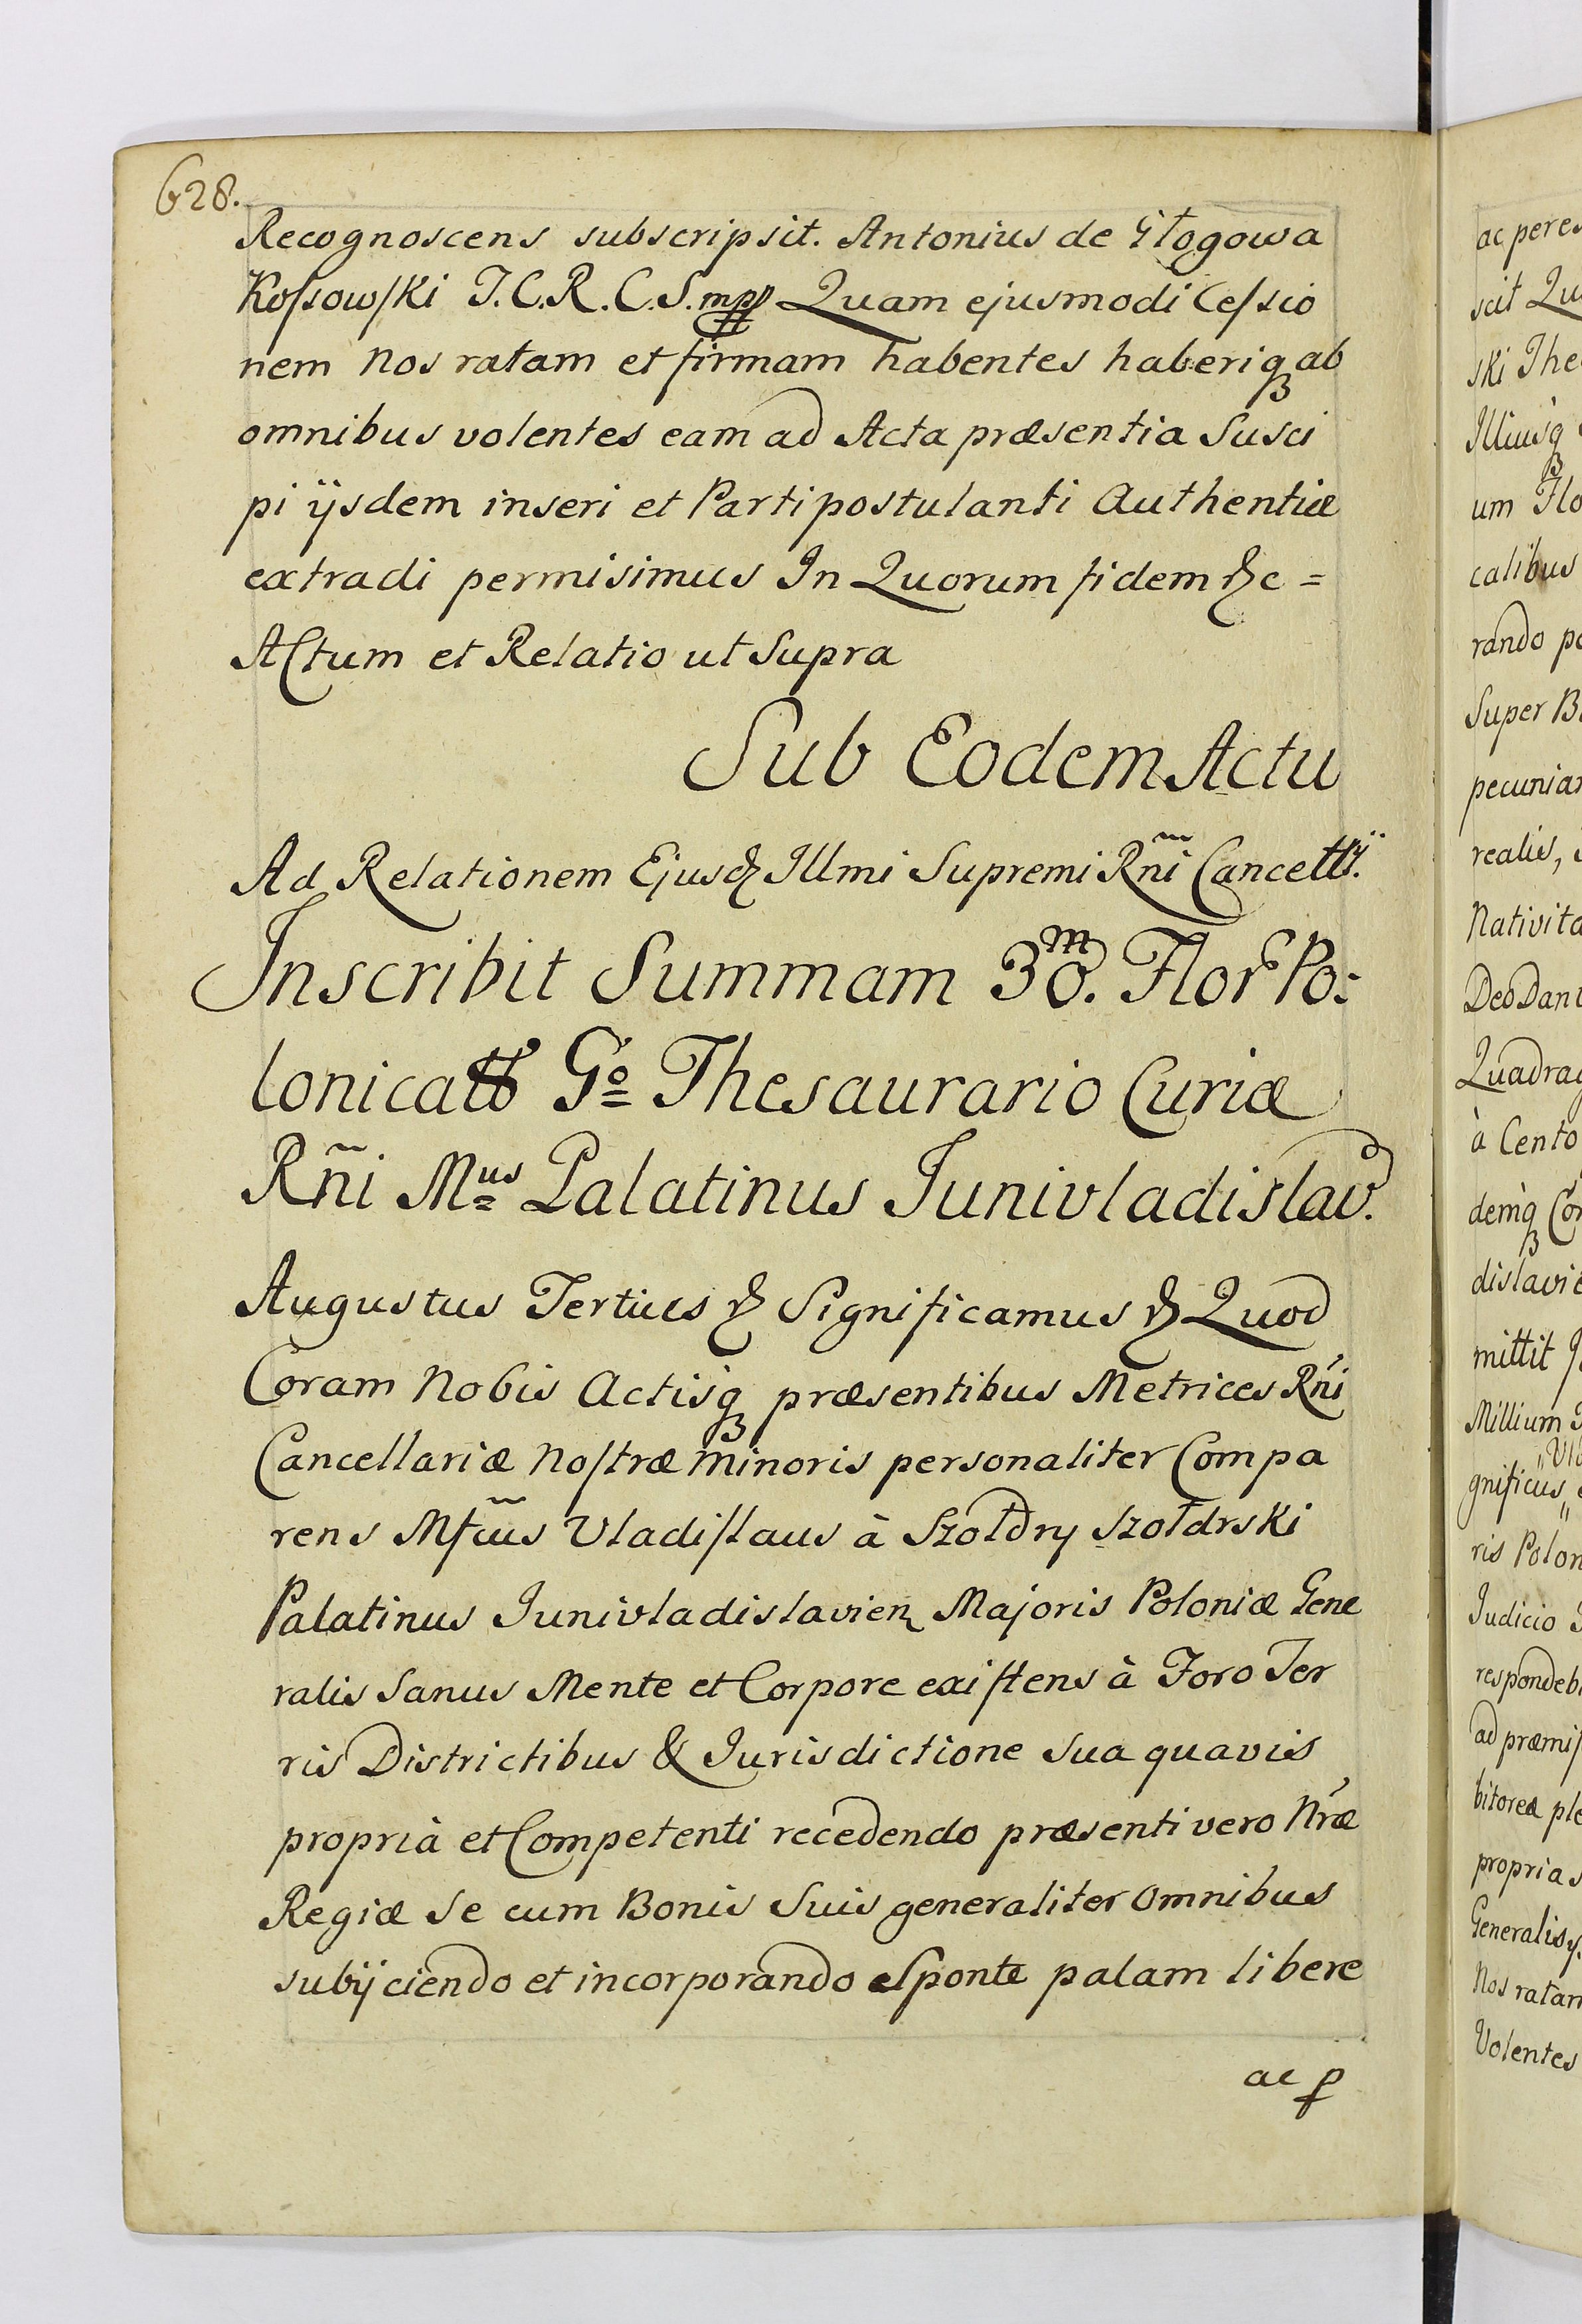 628.
Recognoscens subscripsit. Antonius de Głogowa
Kossowski T.C.R.C.S. mpp Quam ejusmodi Cessio
nem Nos ratam et firmam habentes haberiq₃ ab
omnibus volentes eam ad Acta præsentia Susci
pi ijsdem inseri et Parti postulanti Authentice
extradi permisimus In Quorum fidem &c =
Actum et Relatio ut Supra
Sub Eodem Actu
Ad Relationem Ejusd Illmi Supremi Rñi Cancellrÿ.
Inscribit Summam 30.ᵐ Flor Po:
lonicall Gº Thesaurario Curiæ
Rñi Mᵘˢ Palatinus Junivladislav.
Augustus Tertius & Significamus & Quod
Coram Nobis Actisq₃ præsentibus Metrices Rñi
Cancellariæ Nostræ Minoris personaliter Compa
rens Mfcus Vladislaus à Szołdry Szołdrski
Palatinus Junivladislavien Majoris Poloniæ Gene
ralis Sanus Mente et Corpore existens à Foro Ter
ris Districtibus & Jurisdictione Sua quavis
propriâ et Competenti recedendo præsenti vero Nræ
Regiæ Se cum Bonis Suis generaliter Omnibus
subijciendo et incorporando Sponte palam libere
ac p
ac peres
scit
ski The
Illiusq₃
um Flo
calibus
rando
Super
pecunia
realis,
Nativita
Deo Dant
Quadrag
à Cento
demq₃
dislavie
mittit
Millium
gnificus
ris Polon
Judicio
respondeb
ad præmis
bitorea ple
propria
Generalis
Nos ratam
Volentes